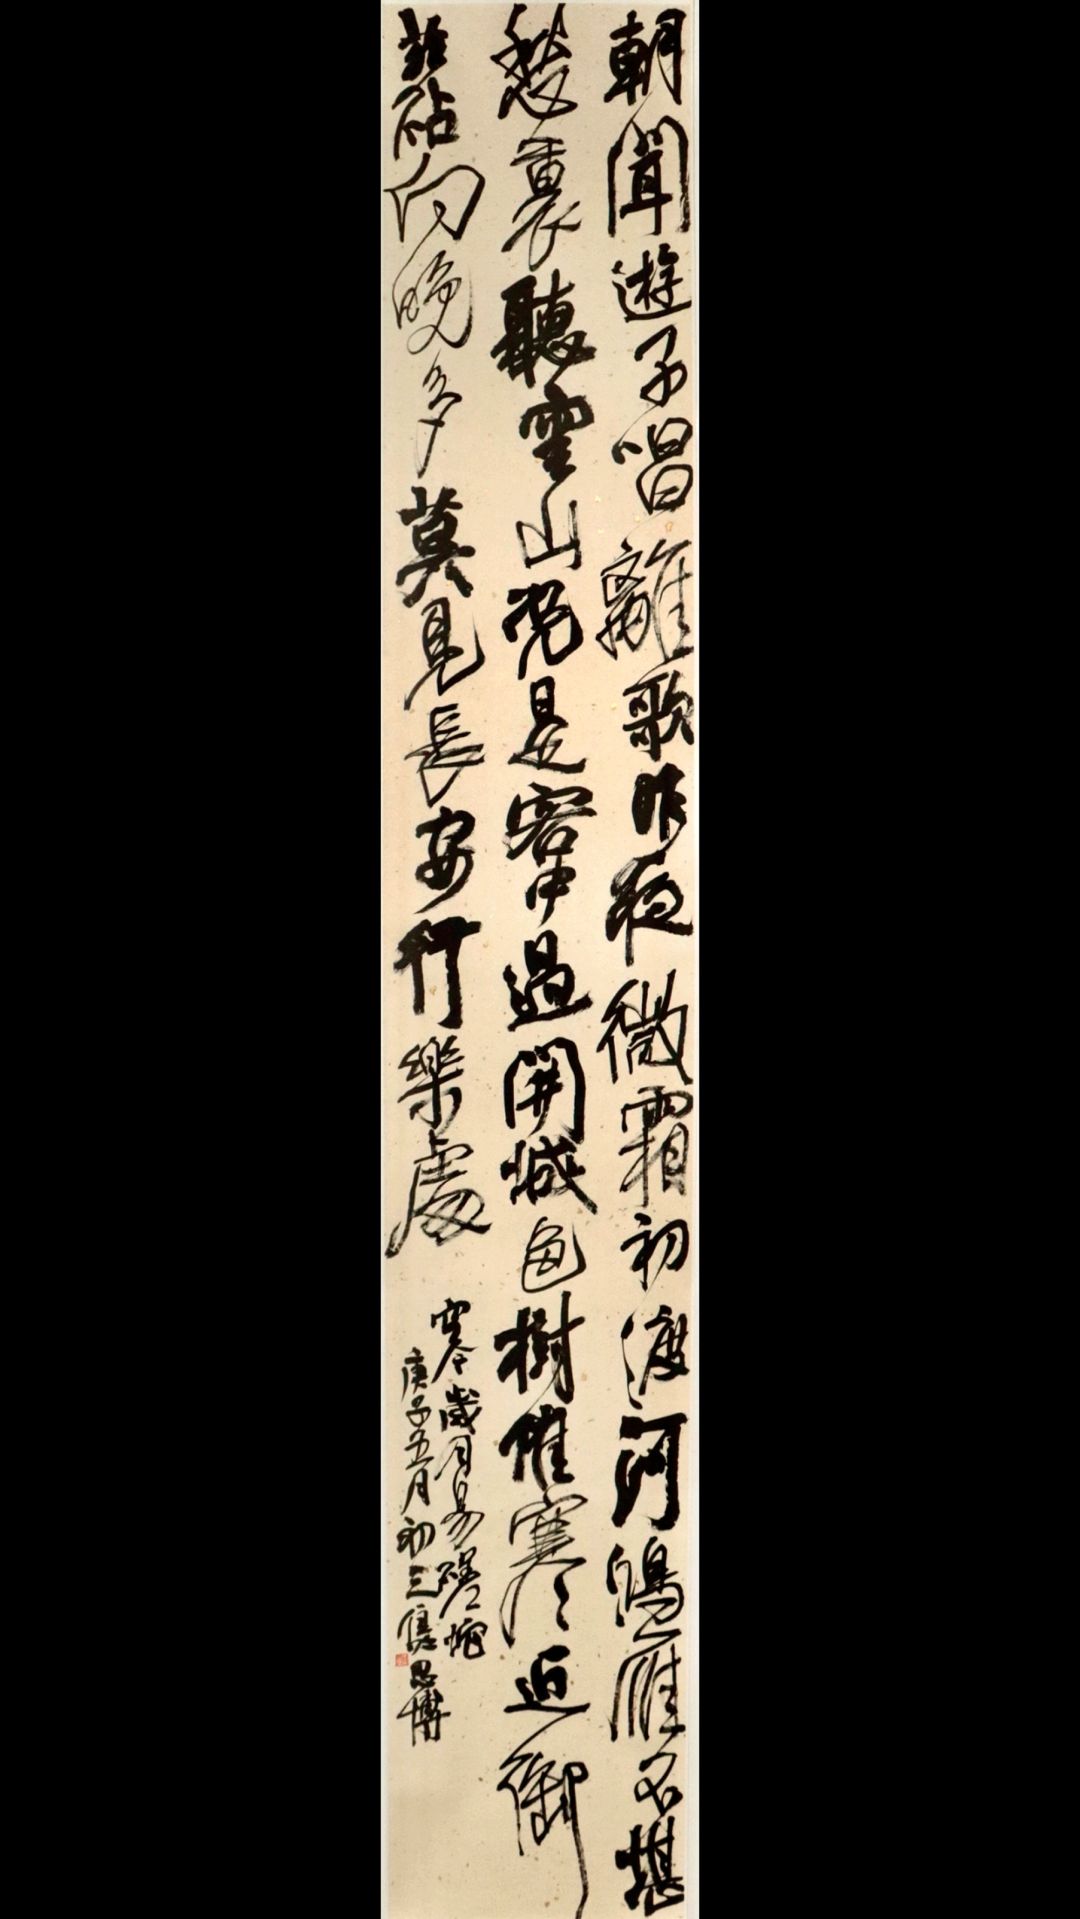 朝聞遊子唱離歌昨夜微霜初渡河鴻雁不堪
愁裏聽雲山況是客中過關城色樹催寒近御
苑砧向晚多莫見長安行樂處
空令歲月易蹉跎
庚子五月初三 思博